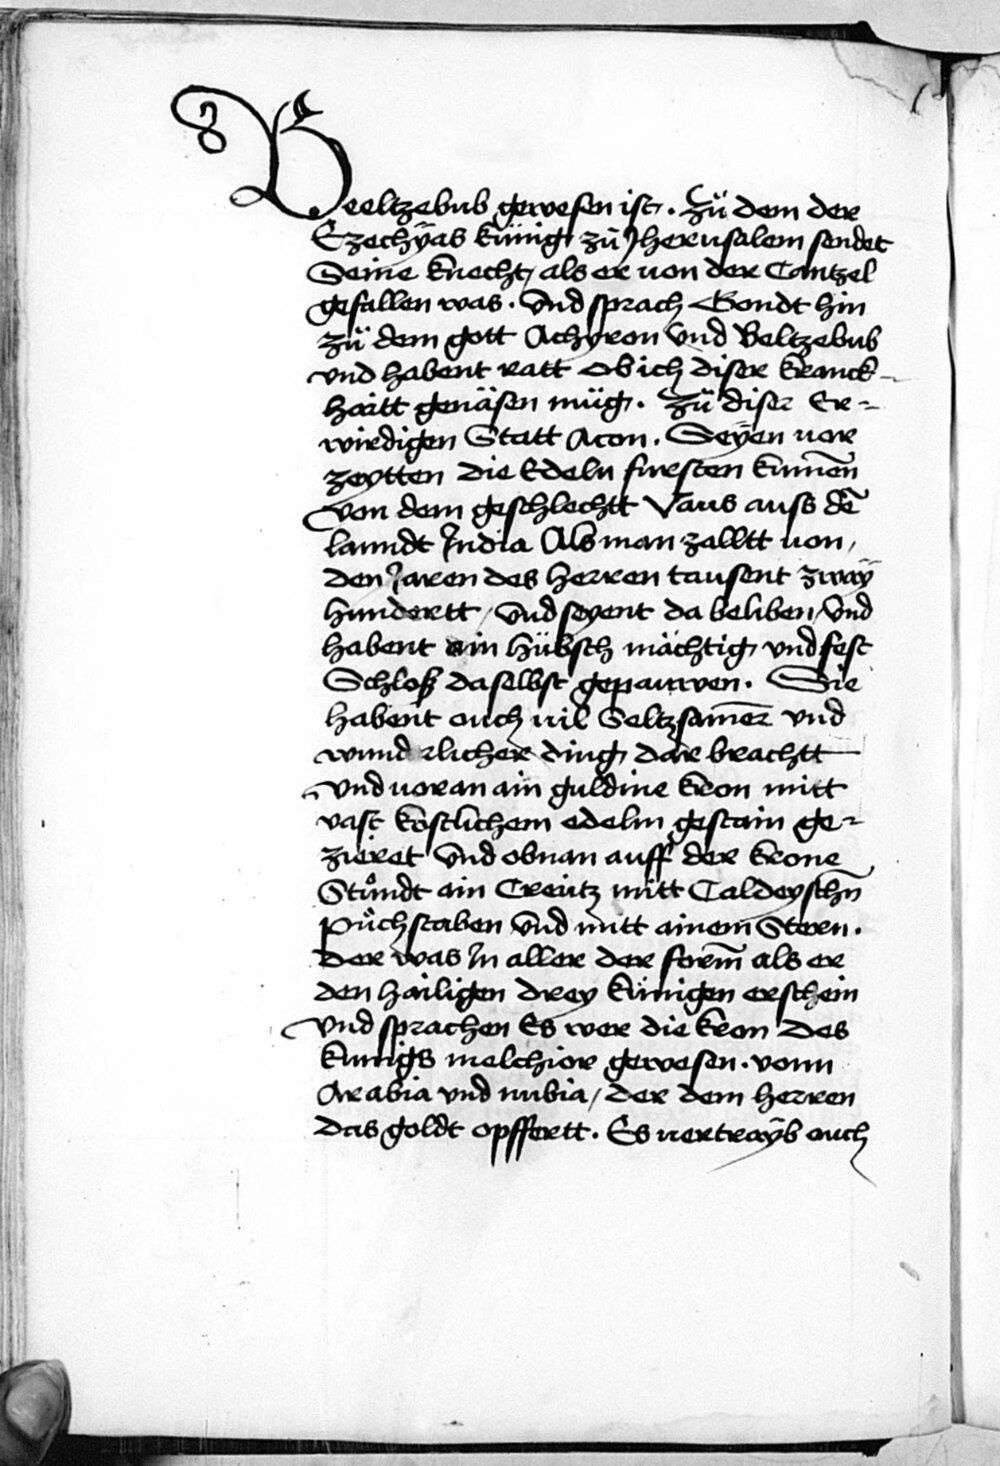 Beeltzebub gewesen ist. Zů dem der
Ezechÿas künig zů Jherusalem sendet
Seine knecht, als er von der Cantzel
gefallen was. Und sprach Gondt hin
zů dem gott Achyron und Beltzebub
und habent ratt ob ich diser kranck-
haitt genäsen müg. Zů diser Er-
wirdigen Statt Acon. Seÿen vor
zeytten die Edeln fursten kumēn
von dem geschlechtt Vaus auss dē
lanndt India Als man zalltt von,
den Jaren des herren tausent zwaÿ
hundertt, Und seyent da beliben, Und
habent ain hübsch mächtig, und fest
Schloß daselbst gepauwen. Sie
habent ouch vil Seltzsamer und
wunderlicher ding, dar brachtt
und voran ain guldine kron mitt
vast köstlichem edelm gestain ge-
zieret Und obnan auff der krone
Stůndt ain Creütz mitt Caldeyschn̄
půchstaben Und mitt ainem Stern.
Der was In aller der form̄ als er
den hailigen drey künigen erschein
und sprachen Es wer die kron des
kunigs melchior gewesen. vonn
Arabia und nubia, der dem herren
das goldt opffertt. Es vertraÿb ouch